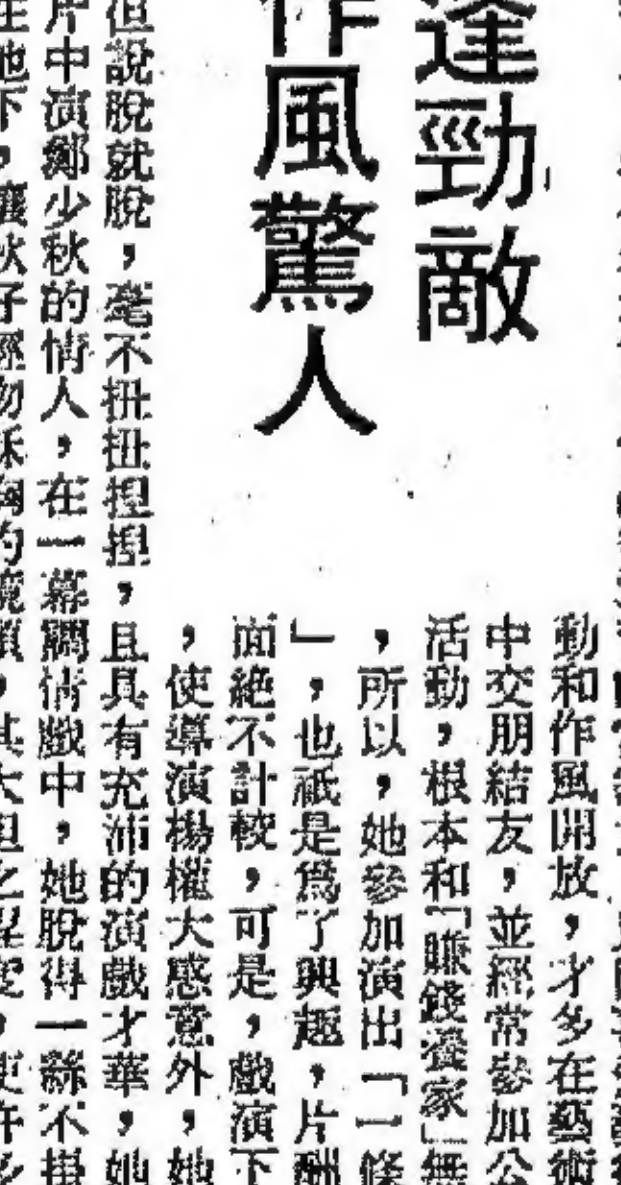 逢勁敵
作風驚人
動和作風開放，才多在藝術
中交朋結友，並經常參加公
活動，根本和「賺錢養家」無
，所以，她參加演出「一條
」，也祇是為了興趣，片酬
面絕不計較，可是，戲演下
，使導演楊權大感意外，她
但說脫就脫，毫不扭扭捏捏，且具有充沛的演戲才華，她
片中演鄭少秋的情人，在一幕調情戲中，她脫得一絲不掛
在地下，讓秋子